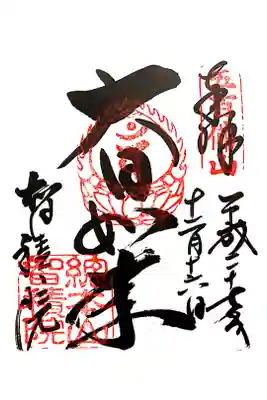 奉拝
五百佛山
平成二十七年
十二月十六日
大日如来
智積院
総本山
智積院